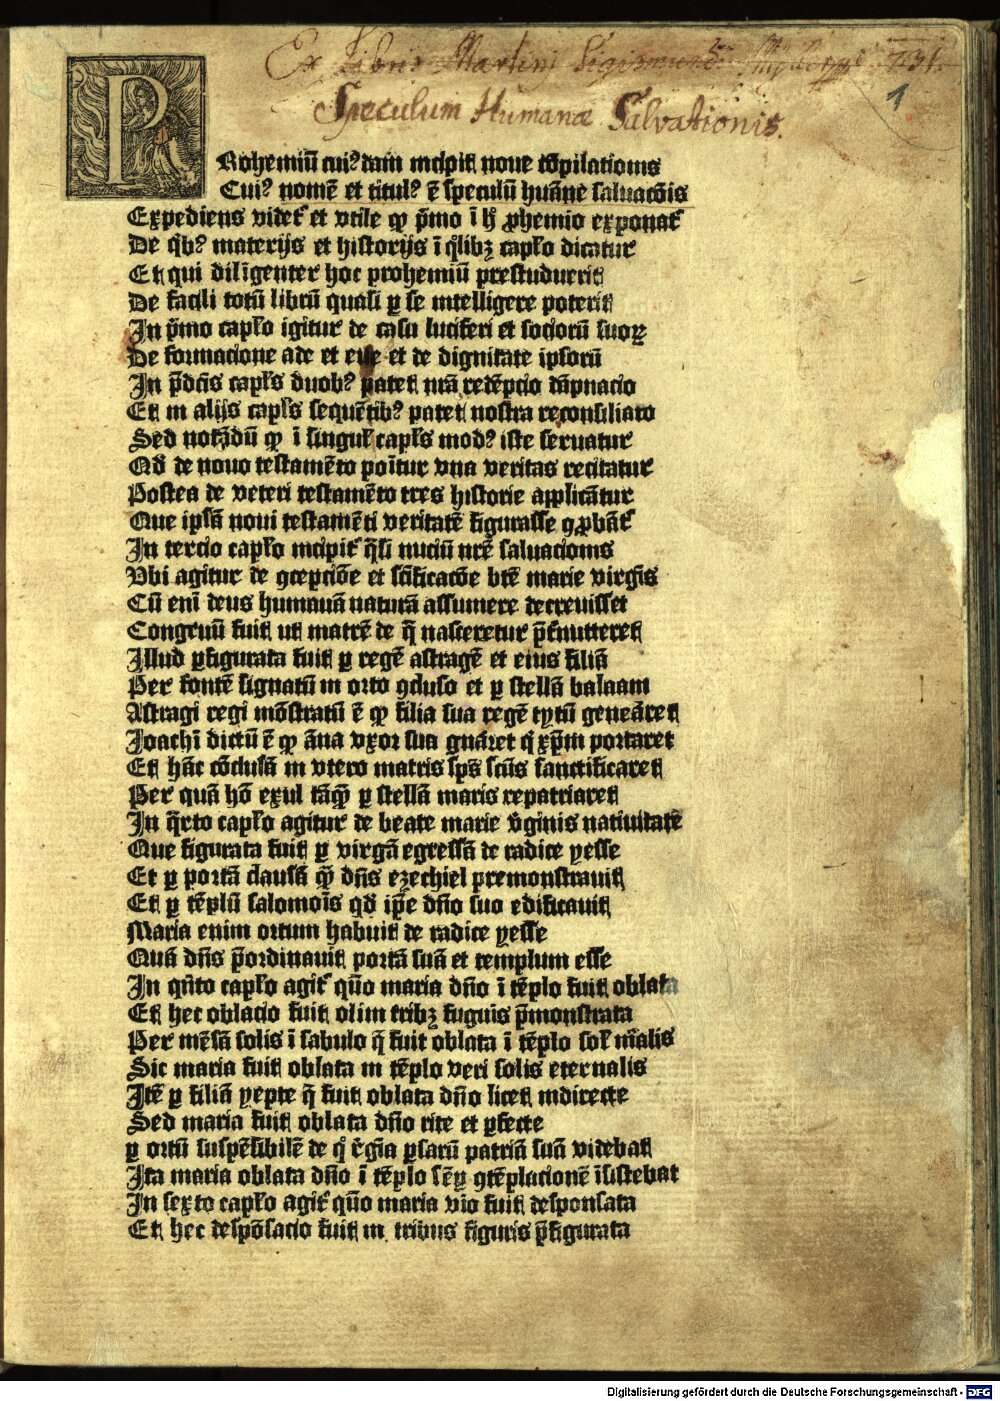 Ex Libris Martini Sigismundi 731.
1
Speculum Humanæ Salvationis.
PRohemiū cuiꝰdam incipit noue cōpilationis
Cuiꝰ nomē et titulꝰ ē speculū huāne saluacōis
Expediens videt᷑ et vtile ꝙ p̄mo ī h̄ ꝓhemio exponat᷑
De q̄bꝰ materijs et historijs ī q̄libꝫ capło dicatur
Et qui diligenter hoc prohemiū prestuduerit
De facili totū librū quasi ꝑ se intelligere poterit
In p̄mo capło igitur de casu luciferi et sociorū suoꝝ
De formacione ade et eue et de dignitate ipsorū
In p̄dc̄is capłs duobꝰ patet nrā redēpcio dāpnacio
Et in alijs capłs sequētibꝰ patet nostra reconsiliato
Sed notādū ꝙ ī singuł capłs modꝰ iste seruatur
Qd̄ de nouo testamēto poītur vna veritas recitatur
Postea de veteri testamēto tres historie applicātur
Que ipsā noui testamēti veritatē figurasse ꝯꝓbāt᷑
In tercio capło incipit᷑ q̄si nuciū nrē saluacionis
Vbi agitur de ꝯcepciōe et sc̄ificacōe btē marie virgīs
Cū enī deus humanā naturā assumere decreuisset
Congruū fuit ut matrē de q̄ nasceretur p̄mitteret
Illud p̄figurata fuit ꝑ regē astragē et eius filiā
Per fontē signatū in orto ꝯcluso et ꝑ stellā balaam
Astragi regi mōstratū ē ꝙ filia sua regē tytū geneāret
Joachī dictū ē ꝙ āna vxor sua gnāret q̄ xp̄m portaret
Et hāc cōclusā in vtero matris sp̄s sc̄us sanctificaret
Per quā hō exul tāꝙ̄ ꝑ stellā maris repatriaret
In q̄rto capło agitur de beate marie v̄ginis natiuitate
Que figurata fuit ꝑ virgā egressā de radice yesse
Et ꝑ portā clausā ꝙ̄ dn̄s ezechiel premonstrauit
Et ꝑ tēplū salomoīs qd̄ ip̄e dn̄o suo edificauit
Maria enim ortum habuit de radice yesse
Quā dn̄s p̄ordinauit portā suā et templum esse
In qn̄to capło agit᷑ quō maria dn̄o ī tēplo fuit oblata
Et hec oblacio fuit olim tribꝫ fuguis p̄monstrata
Per mēsā solis ī sabulo q̄ fuit oblata ī tēplo soł mālis
Sic maria fuit oblata in tēplo veri solis eternalis
Itē ꝑ filiā yepte q̄ fuit oblata dn̄o licet indirecte
Sed maria fuit oblata dn̄o rite et ꝑfecte
ꝑ ortū suspēsibilē de q̊ r̄gīa ꝑsarū patriā suā videbat
Ita maria oblata dn̄o ī tēplo sēꝑ ꝯtēplacionē īsistebat
In sexto capło agit᷑ quō maria vio fuit desponsata
Et hec despōsacio fuit in tribus figuris p̄figurata
Digitalisierung gefördert durch die Deutsche Forschungsgemeinschaft - DFG